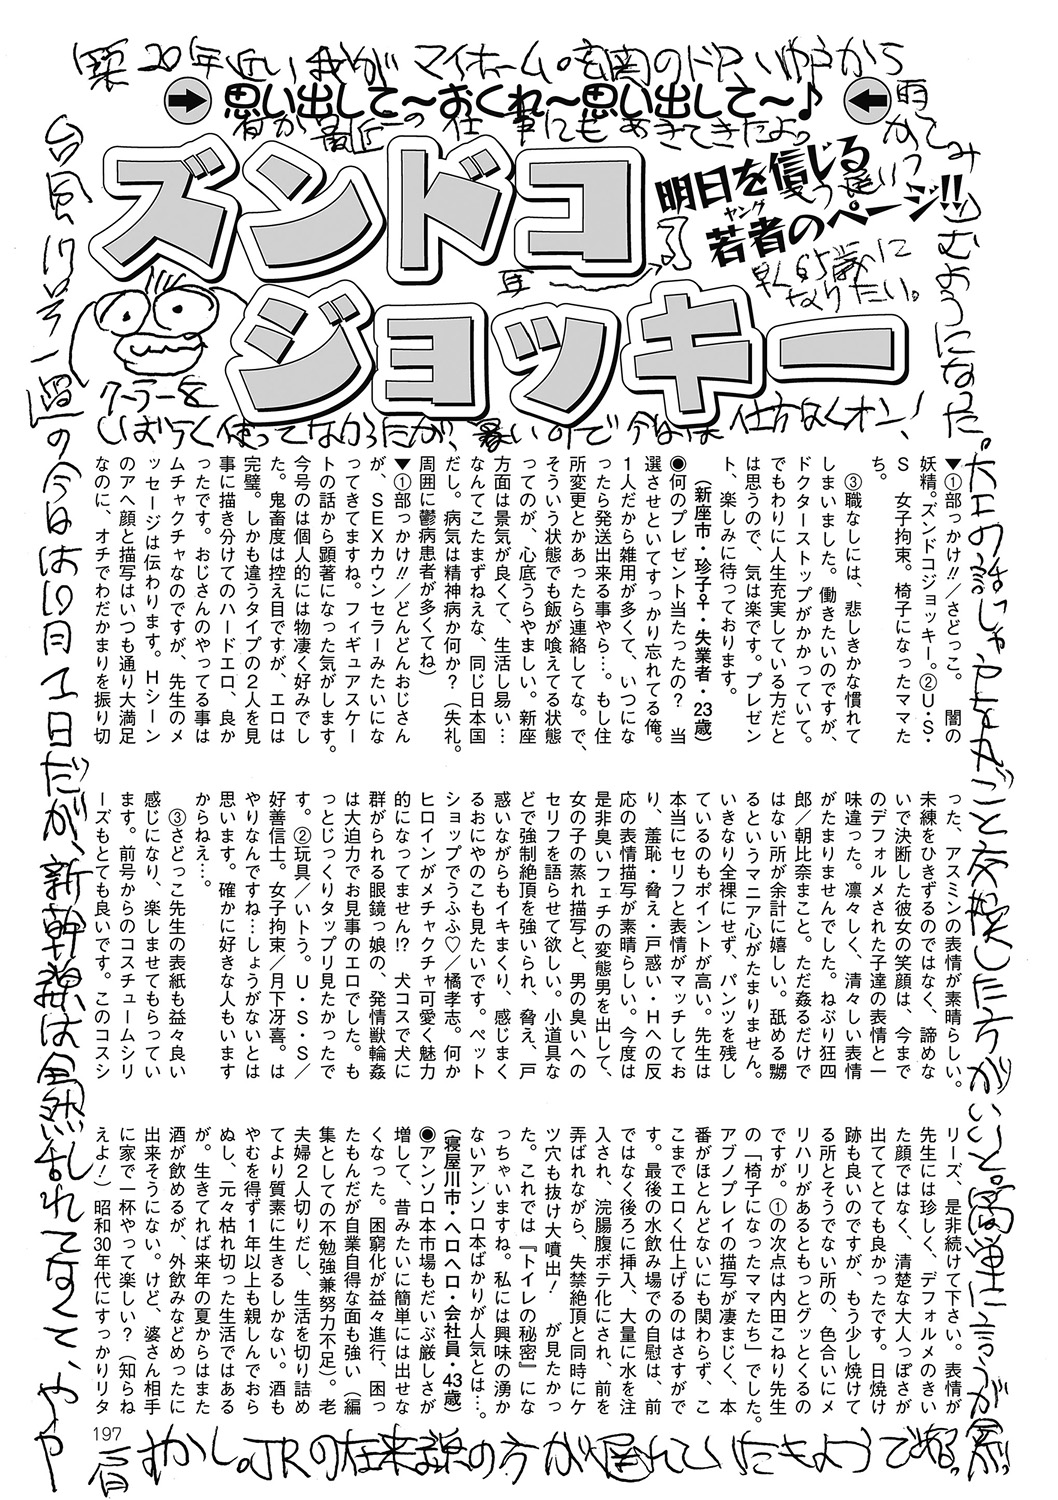 思い出して〜おくれ〜思い出して〜♪
ズンドコ
ジョッキー
明日を信じる
若者のページ!!
ヤング
早く65歳に
なりたい。
クーラーを
しばらく使ってなかったが、暑いので今日は仕方なくオン!
▼①部っかけ!!／さどっこ。 闇の
妖精。ズンドコジョッキー。②U・S・
S 女子拘束。椅子になったママた
ち。
③職なしには、悲しきかな慣れて
しまいました。働きたいのですが、
ドクターストップがかかっていて。
終わりに人生充実している方だと
は思うので、気は楽です。プレゼン
ト、楽しみに待っております。
（新座市・珍子♀・失業者・23歳）
◉何のプレゼント当たったの？ 当
選させといてすっかり忘れてる俺。
1人だから雑用が多くて、いつにな
ったら発送出来る事やら…。もし住
所変更とかあったら連絡してな。で、
そういう状態でも飯が喰えてる状態
ってのが、心底うらやましい。新座
方面は景気が良くて、生活し易い…
なんてこたまずねえな、同じ日本国
だし。病気は精神病か何か？（失礼。
周囲に鬱病患者が多くてね）
▼①部っかけ!!／どんどんおじさん
が、SEXカウンセラーみたいにな
ってきてますね。フィギュアスケー
トの話から顕著になった気がします。
今号のは個人的には物凄く好みでし
た。鬼畜度は控え目ですが、エロは
完璧。しかも違うタイプの2人を見
事に描き分けてのハードエロ、良か
ったです。おじさんのやってる事は
ムチャクチャなのですが、先生のメ
ッセージは伝わります。Hシーン
のアヘ顔と描写はいつも通り大満足
なのに、オチでわだかまりを振り切
った、アスミンの表情が素晴らしい。
未練をひきずるのではなく、諦めな
いで決断した彼女の笑顔は、今まで
のデフォルメされた子達の表情と一
味違った。凛々しく、清々しい表情
がたまりませんでした。ねぶり狂四
郎／朝比奈まこと。ただ姦るだけで
はない所が余計に嬉しい。舐める嬲
るというマニア心がたまりません。
いきなり全裸にせず、パンツを残し
ているのもポイントが高い。先生は
本当にセリフと表情がマッチしてお
り、羞恥・脅え・戸惑い・Hへの反
応の表情描写が素晴らしい。今度は
是非臭いフェチの変態男を出して、
女の子の蒸れ描写と、男の臭いへの
セリフを語らせて欲しい。小道具な
どで強制絶頂を強いられ、脅え、戸
惑いながらもイキまくり、感じまく
るおにやのこも見たいです。ペット
ショップでうふふ♡／橘孝志。何か
ヒロインがメチャクチャ可愛く魅力
的になってません!? 犬コスで犬に
群がられる眼鏡っ娘の、発情獣輪姦
は大迫力でお見事のエロでした。も
っとじっくりタップリ見たかったで
す。②玩具／いトう。U・S・S／
好善信士。女子拘束／月下冴喜。は
やりなんですね…しょうがないとは
思います。確かに好きな人もいます
からねえ…。
③さどっこ先生の表紙も益々良い
感じになり、楽しませてもらってい
ます。前号からのコスチュームシリ
ーズもとても良いです。このコスシ
リーズ、是非続けて下さい。表情が
先生には珍しく、デフォルメのきい
た顔ではなく、清楚な大人っぽさが
出ててとても良かったです。日焼け
跡も良いのですが、もう少し焼けて
る所とそうでない所の、色合いにメ
リハリがあるともっとグッとくるの
ですが。①の次点は内田こねり先生
の「椅子になったママたち」でした。
アブノプレイの描写が凄まじく、本
番がほとんどないにも関わらず、こ
こまでエロく仕上げるのはさすがで
す。最後の水飲み場での自慰は、前
ではなく後ろに挿入、大量に水を注
入され、浣腸腹ボテ化にされ、前を
弄ばれながら、失禁絶頂と同時にケ
ツ穴も抜け大噴出! が見たかっ
た。これでは『トイレの秘密』にな
っちゃいますね。私には興味の湧か
ないアンソロ本ばかりが人気とは…。
（寝屋川市・ヘロヘロ・会社員・43歳）
◉アンソロ本市場もだいぶ厳しさが
増して、昔みたいに簡単には出せな
くなった。困窮化が益々進行、困っ
たもんだが自業自得な面も強い（編
集としての不勉強兼努力不足）。老
夫婦2人切りだし、生活を切り詰め
てより質素に生きるしかない。酒も
やむを得ず1年以上も親しんでおら
ぬし、元々枯れ切った生活ではある
が。生きてれば来年の夏からはまた
酒が飲めるが、外飲みなどめったに
出来そうにない。けど、婆さん相手
に家で一杯やって楽しい？（知らね
えよ!）昭和30年代にすっかりリタ
197
台風一過の今日は10月1日だが、新幹線は全然乱れてなくて、やや
肩すかし。JRの在来線の方が遅れていたようである。